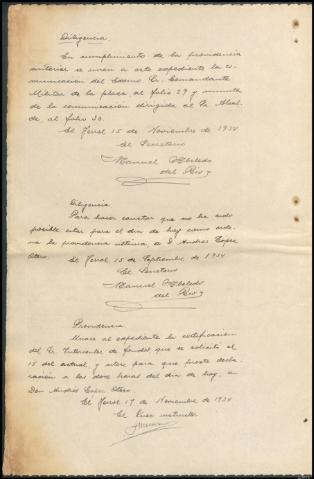 Diligencia
En cumplimiento de la providencia
anterior se unen a este expediente la co-
municacion del Excmo. Sr. Comandante
Militar de la plaza, al folio 29 y minuta
de la comunicacion dirigida al Sr. Alcal-
de, al folio 30.
El Ferrol 15 de Noviembre de 1934
El Secretario
Manuel Robledo
del Rio
Diligencia
Para hacer constar que no ha sido
posible citar para el dia de hoy como orde-
na la providencia ultima, a D. Andres
Otero.
El Ferrol 15 de Septiembre de 1934
El Secretario
Manuel Robledo
del Rio
Providencia
Unase al expediente la certificacion
del Sr. Interventor de que se solicitó el
15 del actual, y citese para que preste decla-
racion a las doce horas del dia de hoy, a
Don Andrés Otero.
El Ferrol 17 de Noviembre de 1934
El Juez instructor